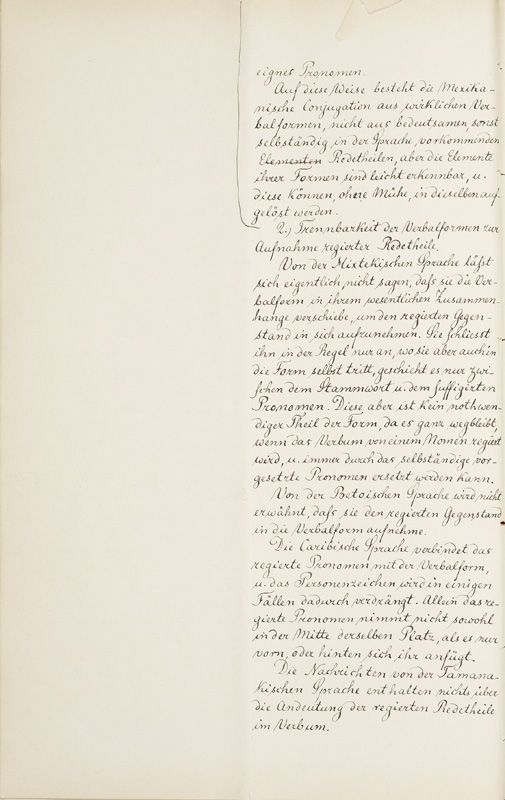 eignes Pronomen.
Auf diese Weise besteht die Mexika-
nische Conjugation aus wirklichen Ver-
balformen, nicht aus bedeutsamen, sonst
selbständig in der Sprache vorkommenden
Elementen Redetheilen, aber die Elemente
ihrer Formen sind leicht erkennbar, u.
diese können, ohne Mühe, in dieselben auf-
gelöst werden.
2.) Trennbarkeit der Verbalformen zur
Aufnahme regierter Redetheile.
Von der Mixtekischen Sprache läfst
sich eigentlich nicht sagen, dafs sie die Ver-
balform in ihrem wesentlichen Zusammen-
hange verschiebe, um den regierten Gegen-
stand in sich aufzunehmen. Sie schliesst
ihn in der Regel nur an, wo sie aber auch in
die Form selbst tritt, geschieht es nur zwi-
schen dem Stammwort u. dem suffigirten
Pronomen. Diese aber ist kein nothwen-
diger Theil der Form, da es ganz wegbleibt,
wenn das Verbum von einem Nomen regiert
wird, u. immer durch das selbständige vor-
gesetzte Pronomen ersetzt werden kann.
Von der Betoischen Sprache wird nicht
erwähnt, dafs sie den regierten Gegenstand
in die Verbalform aufnehme.
Die Caribische Sprache verbindet das
regierte Pronomen mit der Verbalform,
u. das Personenzeichen wird in einigen
Fällen dadurch verdrängt. Allein das re-
gierte Pronomen nimmt nicht sowohl
in der Mitte derselben Platz, als es nur
vorn, oder hinten sich ihr anfügt.
Die Nachrichten von der Tamana-
kischen Sprache enthalten nichts über
die Andeutung der regierten Redetheile
im Verbum.